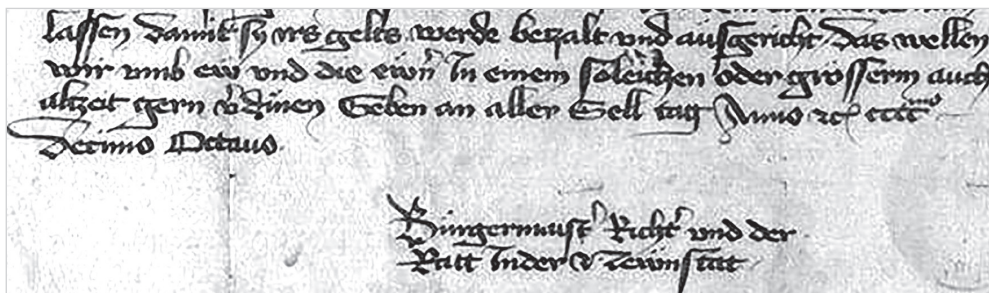 lassen damit sy irs gelts werde betzalt vnd ausgericht das wellen
wir vmb ew vnd die ewrn̄ In einem soleichen oder grösserm auch
altzeit gern v'dinen Geben an aller Sell tag Anno ⁊c cccc mo
Decimo Octauo
Burgermaist' Richt' vnd der
Ratt In der Newnstat